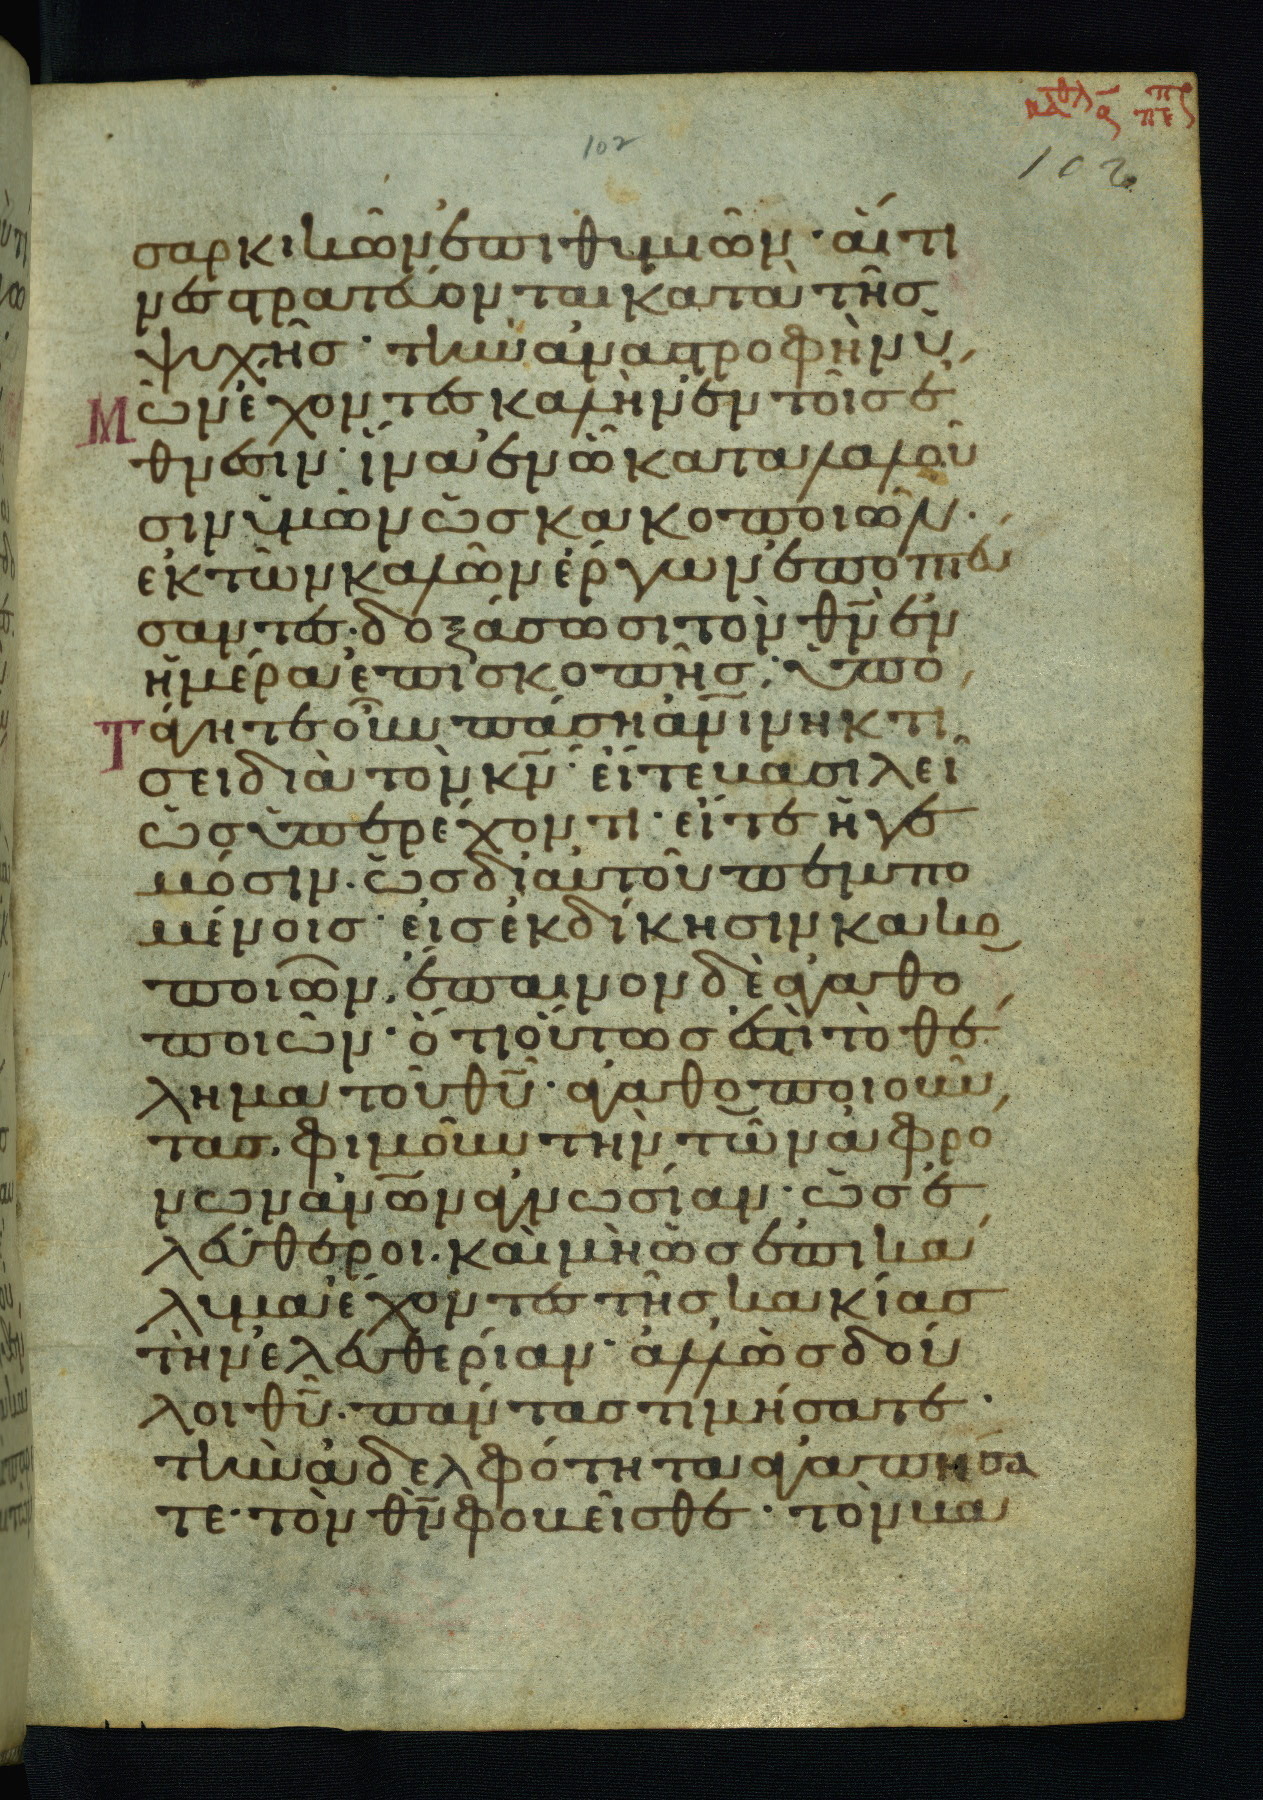 καθλ α πε
102
102
σαρκικῶν ἐπιθυμιῶν· αἵτι
νες στρατεύονται κατὰ τῆς
ψυχῆς· τὴν ἀναστροφὴν ὑ
Μῶν ἔχοντες καλὴν ἐν τοῖς ἔ
θνεσιν· ἵνα ἐν ᾧ καταλαλοῦ
σιν ὑμῶν ὡς κακοποιῶν·
ἐκ τῶν καλῶν ἔργων ἐποπτεύ
σαντες· δοξάσωσι τὸν θν ἐν
ἡμέρα ἐπισκοπῆς· ὑπο
Τάγητε οὖν πάση ἀνινη κτί
σει διὰ τὸν κν· εἴτε βασιλεῖ
ὡς ὑπερέχοντι· εἴτε ἡγε
μόσιν· ὡς δι αὐτοῦ πεμπο
μένοις· εἰς ἐκδίκησιν κακο
ποιῶν, ἔπαινον δὲ ἀγαθο
ποιῶν· ὅτι οὕτως ἐστὶ τὸ θέ
λημα τοῦ θυ· ἀγαθοποιοῦν
τας· φιμοῦν τὴν τῶν ἀφρό
νων ἀνων ἀγνωσίαν· ὡς ἐ
λεύθεροι· καὶ μὴ ὡς ἐπικά
λυμα ἔχοντες τῆς κακίας
τὴν ἐλευθερίαν· ἀλλ ὡς δοῦ
λοι θυ· πάντας τιμήσατε·
τὴν ἀδελφότητα ἀγαπήσα
τε· τὸν θν φοβεῖσθε· τὸν βα